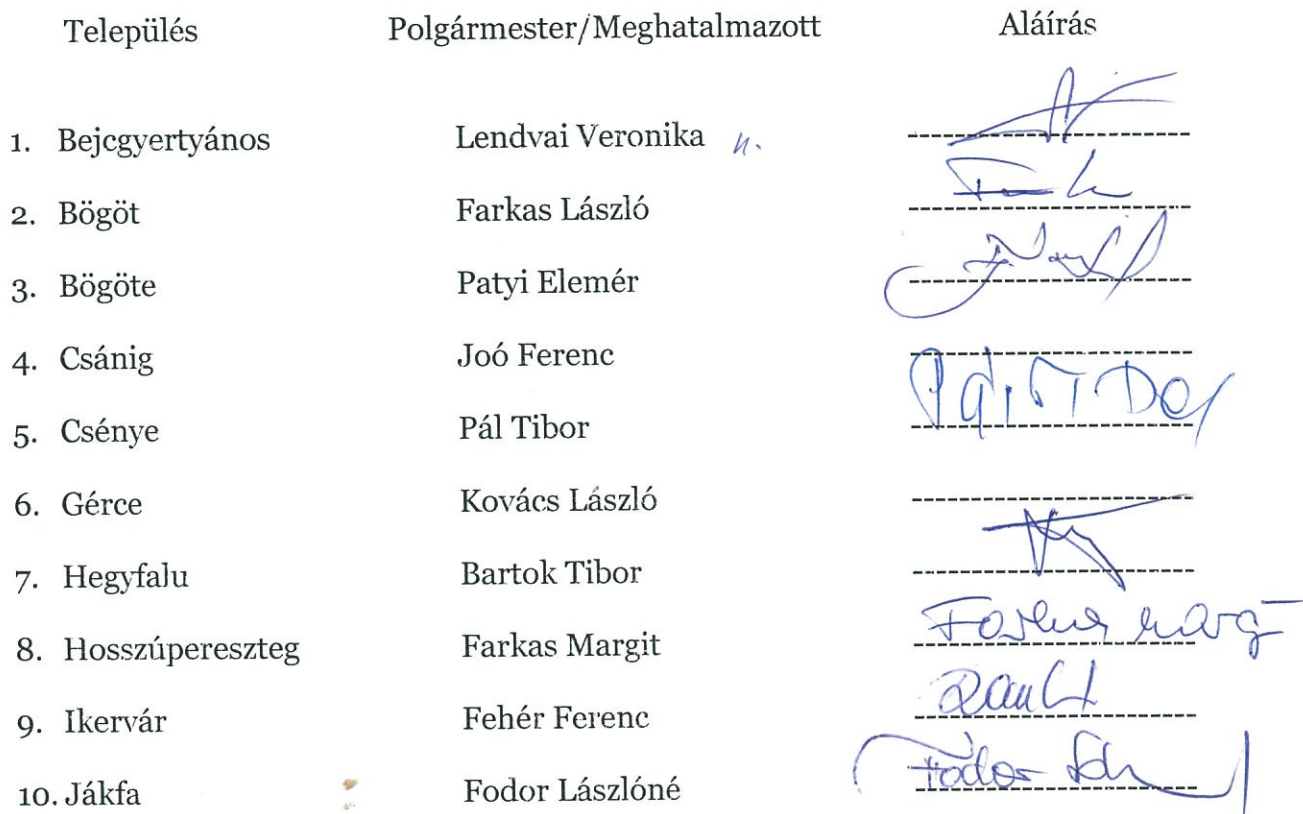 Település Polgármester/Meghatalmazott Aláírás
1. Bejcgyertyános Lendvai Veronika
2. Bögöt Farkas László
3. Bögöte Patyi Elemér
4. Csánig Joó Ferenc
5. Csénye Pál Tibor
6. Gérce Kovács László
7. Hegyfalu Bartok Tibor
8. Hosszúpereszteg Farkas Margit
9. Ikervár Fehér Ferenc
10. Jákfa Fodor Lászlóné Fodor